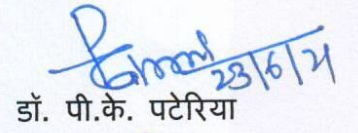 23/6/21
डॉ. पी.के. पटेरिया